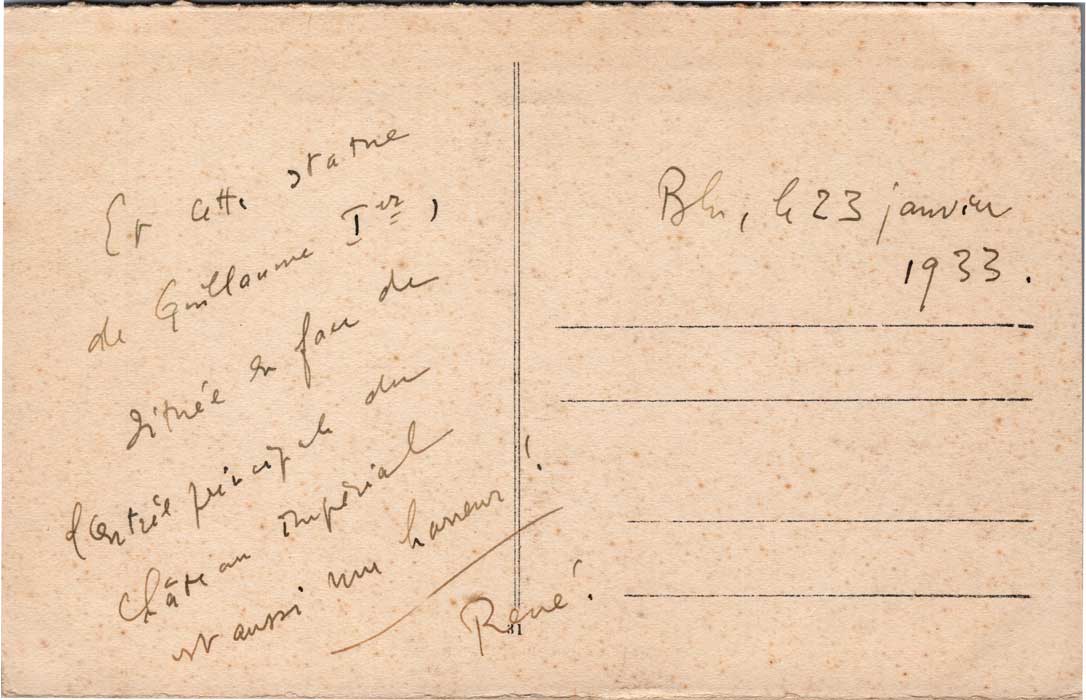 Et cette statue
de Guillaume Ier,
située en face de
l'entrée principale du
château impérial
est aussi une horreur !
René.
31
Bln, le 23 janvier
1933.